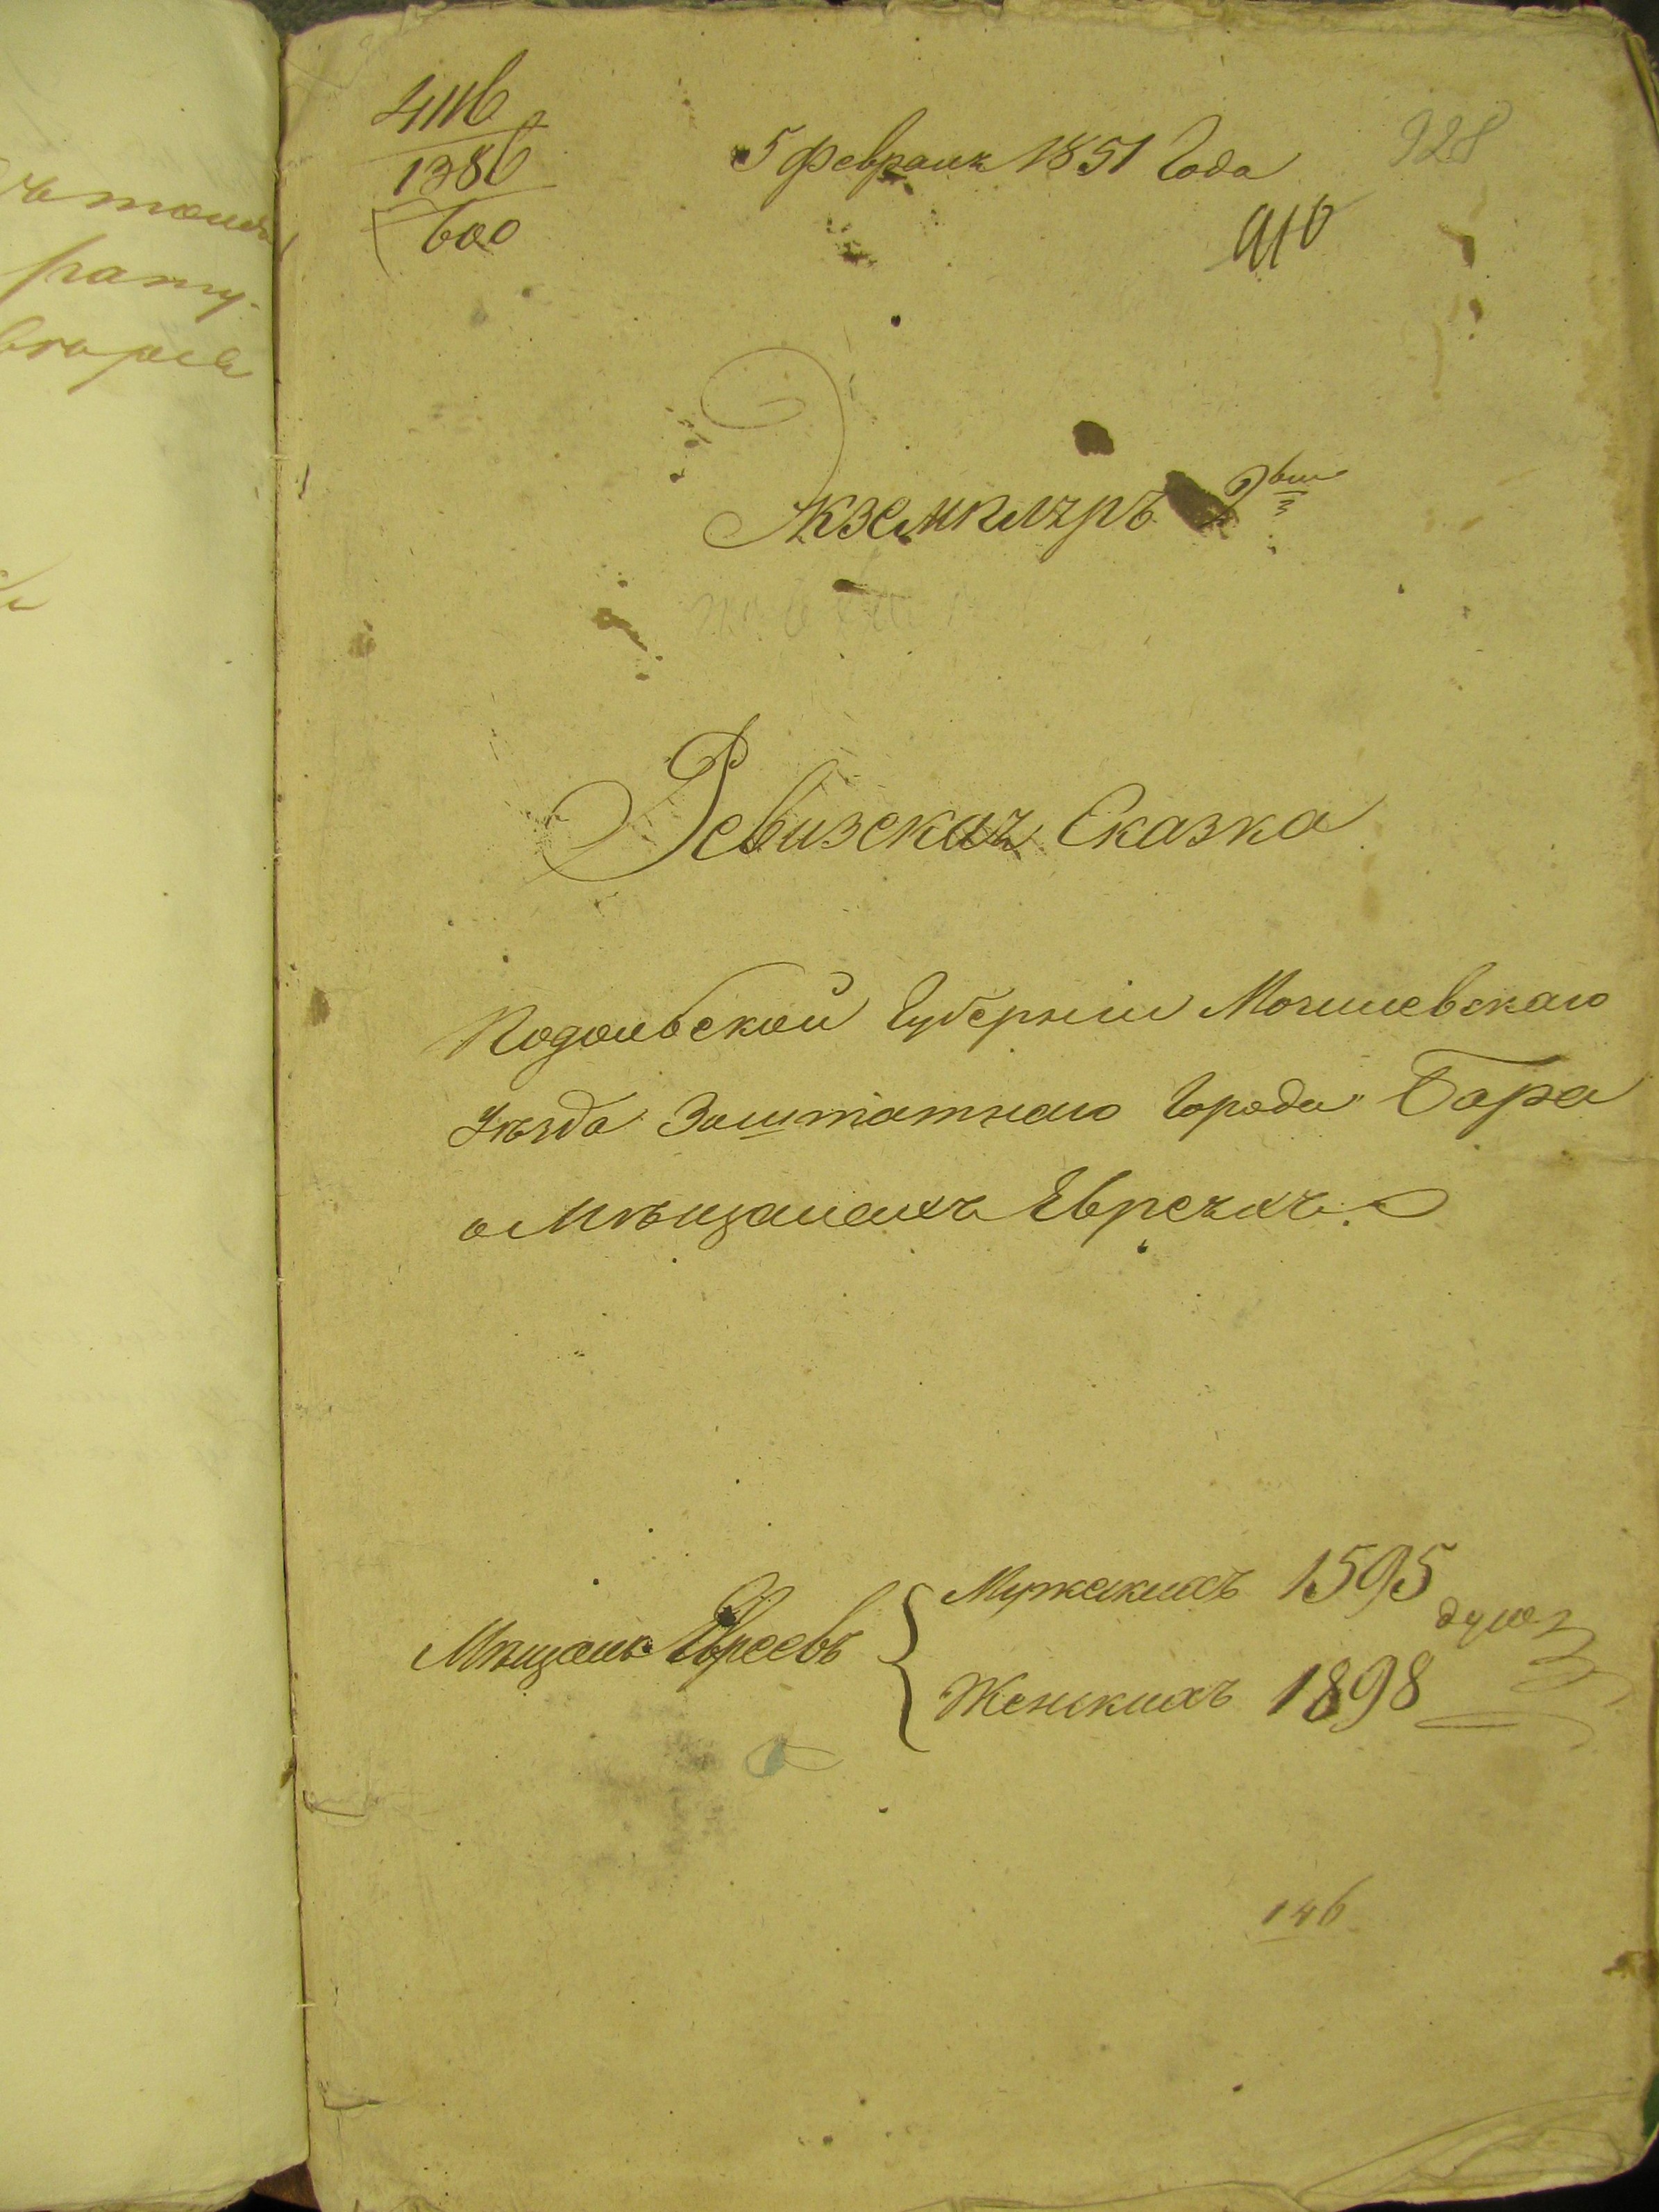 4116
1386
600
5 февраля 1851 Года
928
910
Экземпляръ 2
Ревизская Сказка
Подольской Губерніи Могилевскаго
Уѣзда Заштатнаго Города Бара
о Мѣщанахъ Евреяхъ.
Мѣщанъ Евреевъ
Мужскихъ 1595
душъ
Женскихъ 1898
146